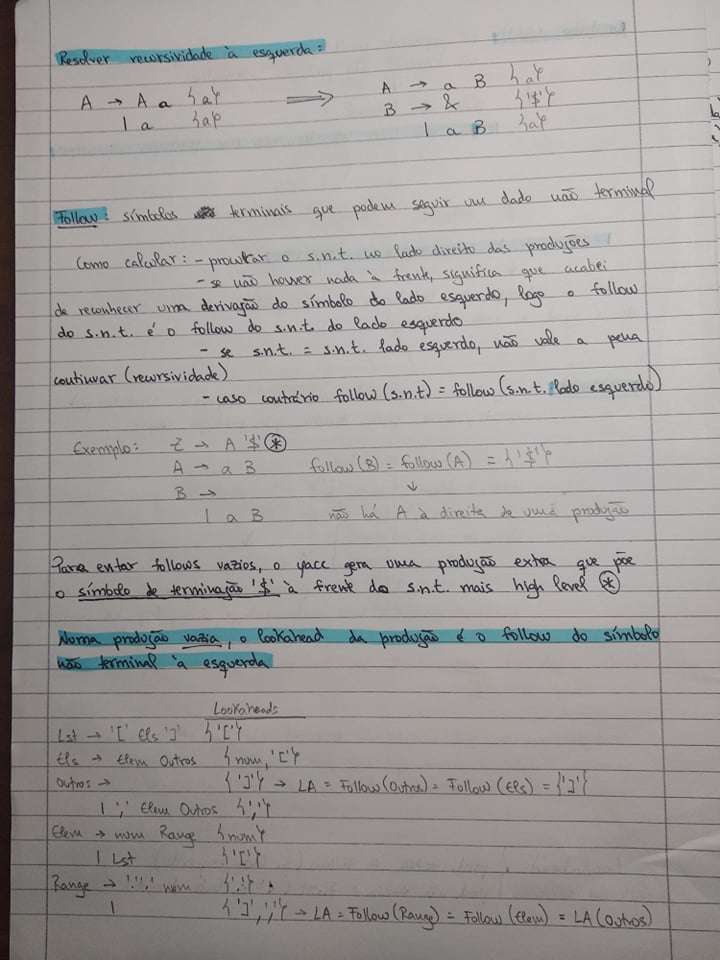 Resolver recursividade à esquerda:
A → A a {a} ⟹ A → a B {a}
| a {a} B → & {'$'}
| a B {a}
Follow: símbolos terminais que podem seguir um dado não terminal
Como calcular: - procurar o s.n.t. no lado direito das produções
- se não houver nada à frente, significa que acabei
de reconhecer uma derivação do símbolo do lado esquerdo, logo o follow
do s.n.t. é o follow do s.n.t do lado esquerdo
- se s.n.t. = s.n.t. lado esquerdo, não vale a pena
continuar (recursividade)
- caso contrário follow(s.n.t) = follow(s.n.t. lado esquerdo)
Exemplo: Z → A '$' *
A → a B follow(B) = follow(A) = {'$'}
B → ↓
| a B não há A à direita de uma produção
Para evitar follows vazios, o yacc gera uma produção extra que põe
o símbolo de terminação '$' à frente do s.n.t. mais high level *
Numa produção vazia, o lookahead da produção é o follow do símbolo
não terminal à esquerda
Lookaheads
Lst → '[' Els ']' {'['}
Els → Elem Outros {num, '['}
Outros → {']'} → LA = Follow(Outros) = Follow(Els) = {']'}
| ',' Elem Outros {','}
Elem → num Range {num}
| Lst {'['}
Range → '.' '.' num {'.'}
| {']', ','} → LA = Follow(Range) = Follow(Elem) = LA(Outros)